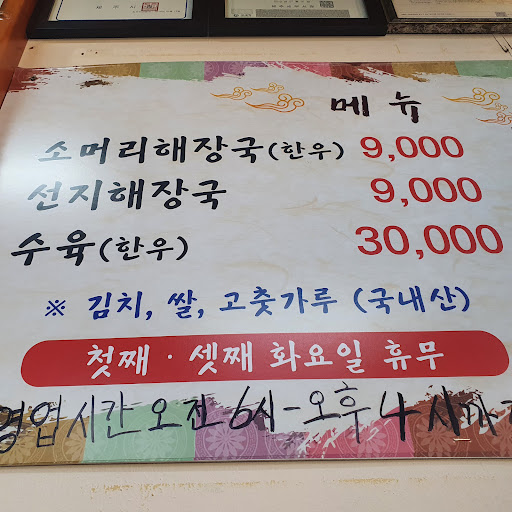 메뉴
소머리해장국(한우) 9,000
선지해장국 9,000
수육(한우) 30,000
※ 김치, 쌀, 고춧가루 (국내산)
첫째 · 셋째 화요일 휴무
영업시간 오전 6시-오후 4시까지